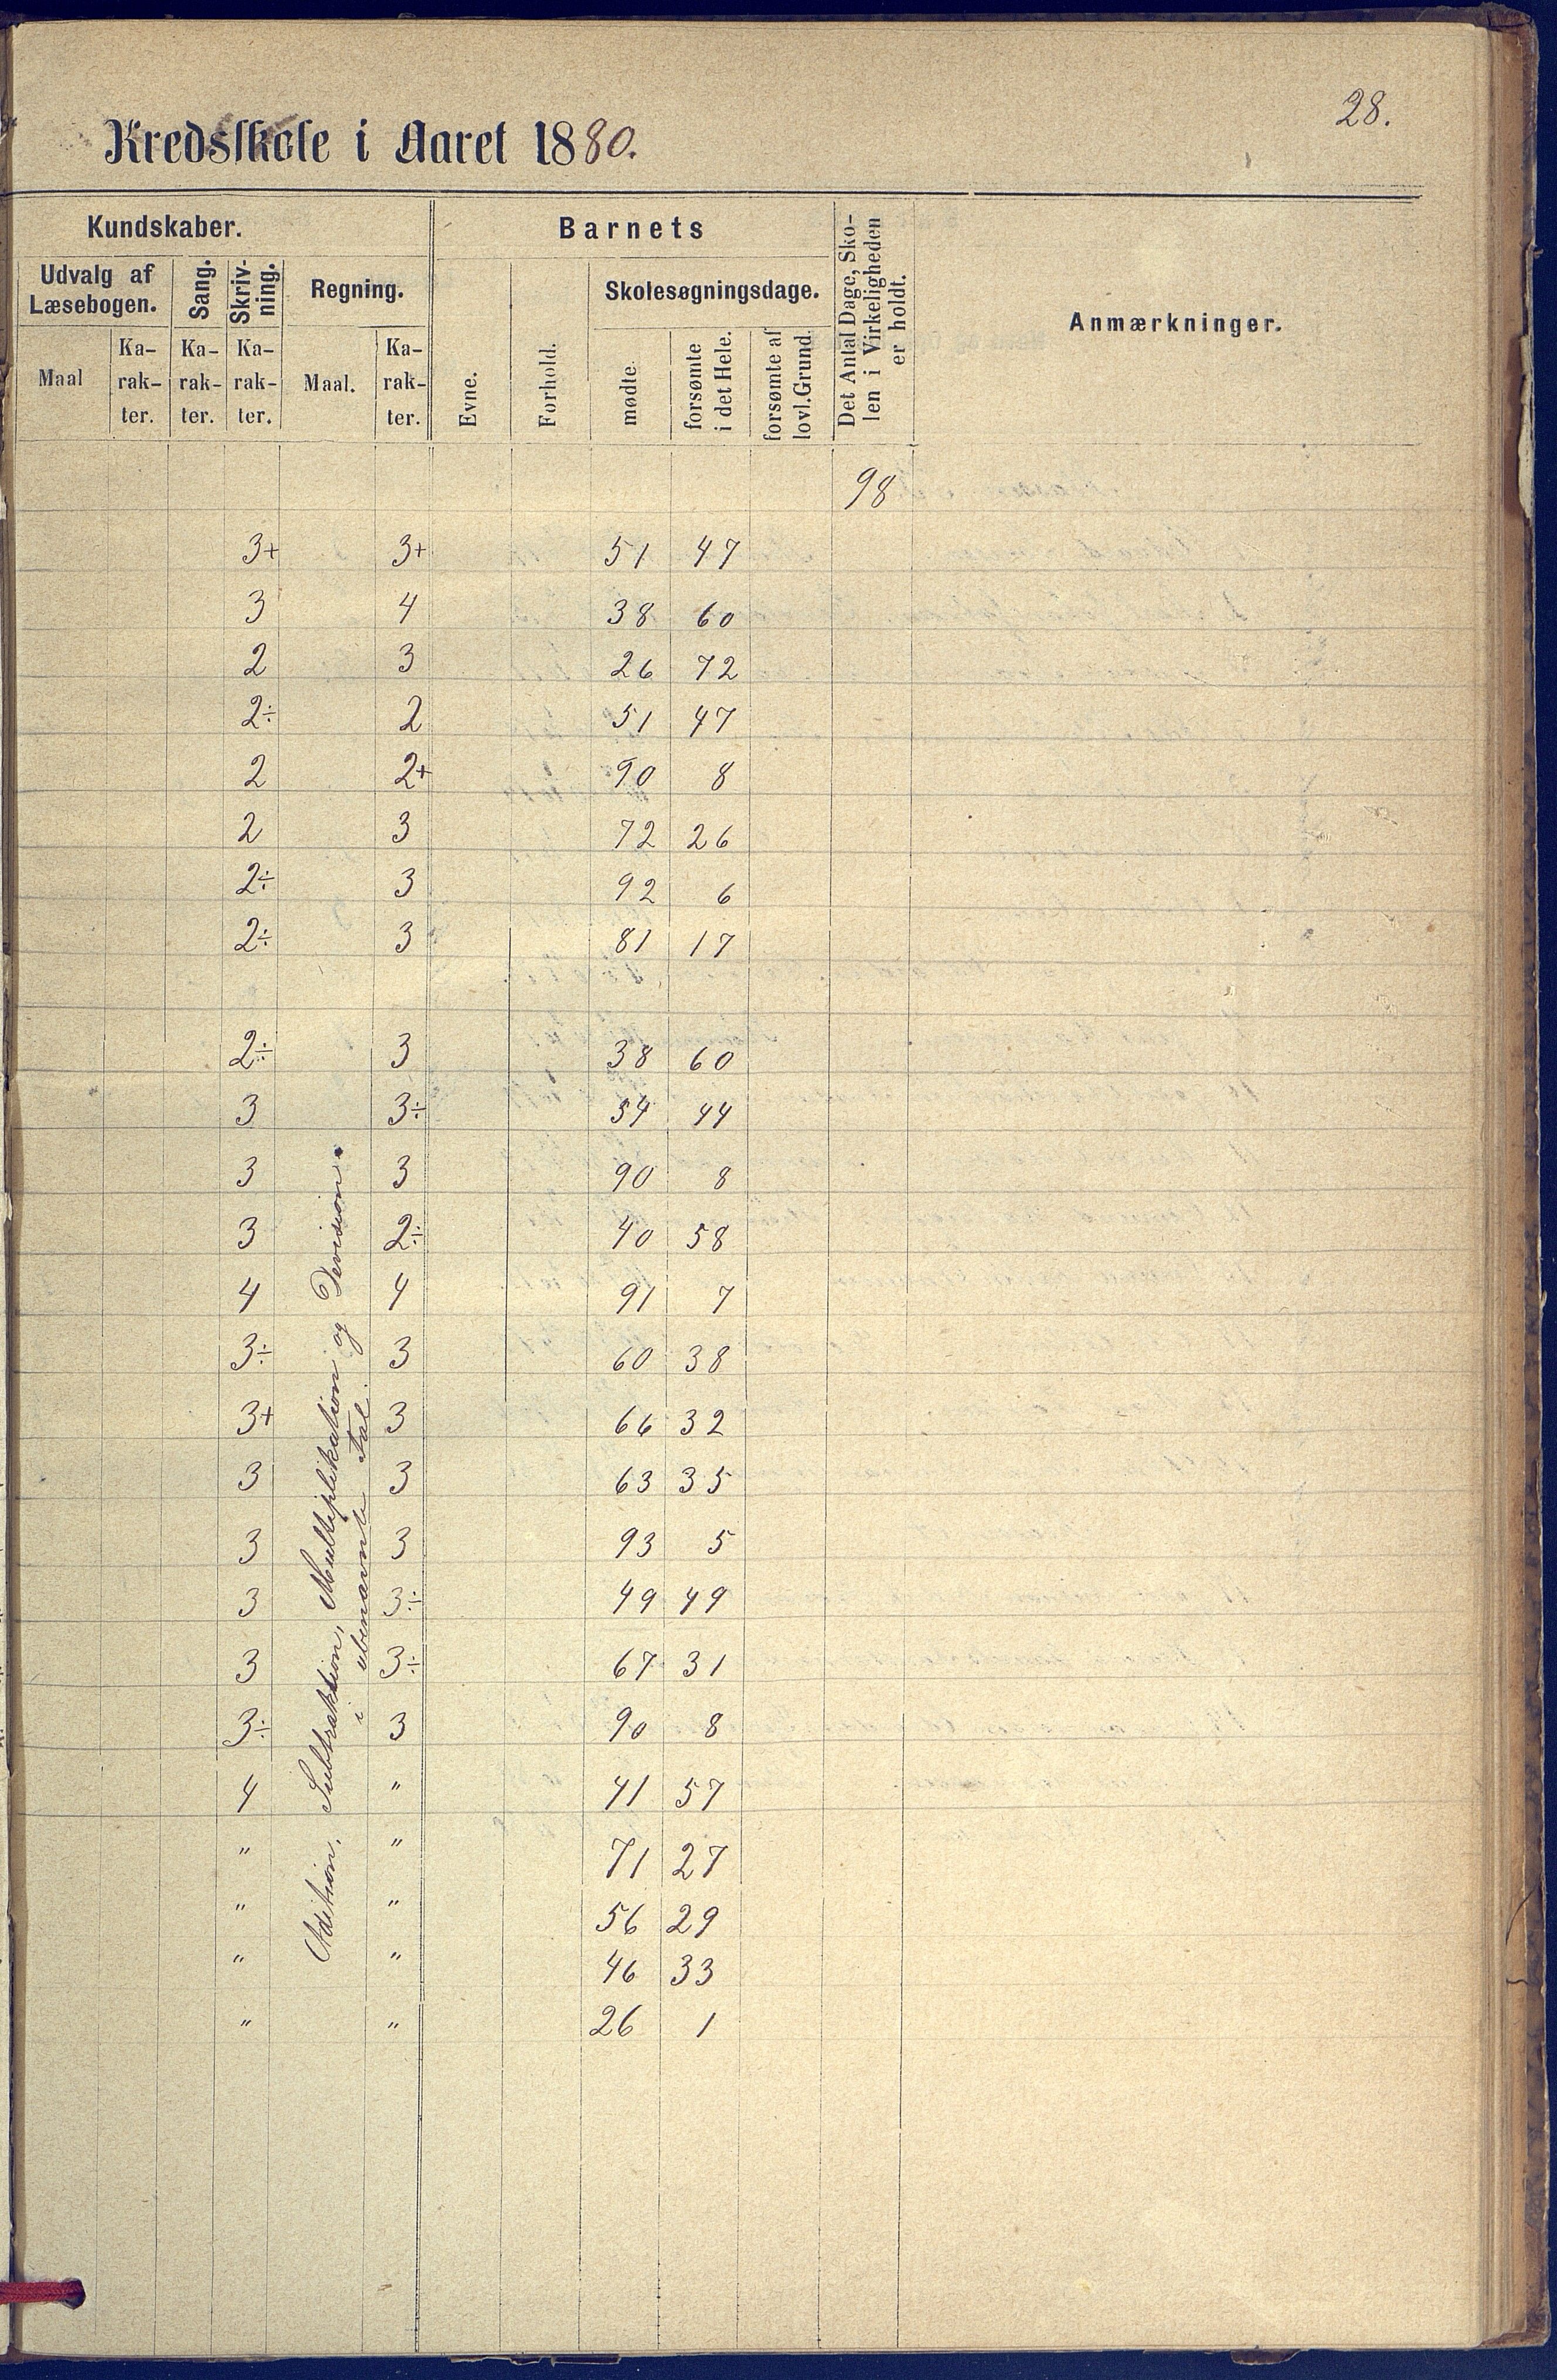 28.
Kredsskole i Aaret 1880.
Kundskaber.
Barnets
Det Antal Dage, Sko-
len i Virkeligheden
er holdt.
Anmærkninger.
Udvalg af
Læsebogen.
Sang.
Skriv-
ning.
Regning.
Evne.
Forhold.
Skolesøgningsdage.
Maal
Ka-
rak-
ter.
Ka-
rak-
ter.
Ka-
rak-
ter.
Maal.
Ka-
rak-
ter.
mødte.
forsømte
i det Hele.
forsømte af
lovl. Grund.
98
3+ 3+ 51 47
3 4 38 60
2 3 26 72
2÷ 2 51 47
2 2+ 90 8
2 3 72 26
2÷ 3 92 6
2÷ 3 81 17
2÷ 3 38 60
3 3÷ 54 44
3 3 90 8
3 2÷ 40 58
4 4 91 7
3÷ 3 60 38
3+ 3 66 32
3 3 63 35
3 3 93 5
3 3÷ 49 49
3 3÷ 67 31
3÷ 3 90 8
4 " 41 57
" " 71 27
" " 56 29
" " 46 33
" " 26 1
Adition, Subtraktion, Multiplikation og Devision
i ubenævnte Tal.